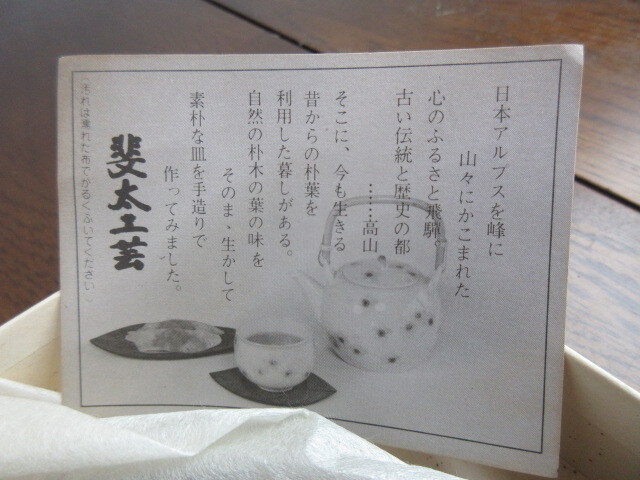 日本アルプスを峰に
山々にかこまれた
心のふるさと飛騨。
古い伝統と歴史の都
……高山
そこに、今も生きる
昔からの朴葉を
利用した暮しがある。
自然の朴木の葉の味を
そのまゝ生かして
素朴な皿を手造りで
作ってみました。
斐太工芸
汚れは濡れた布でかるくふいてください